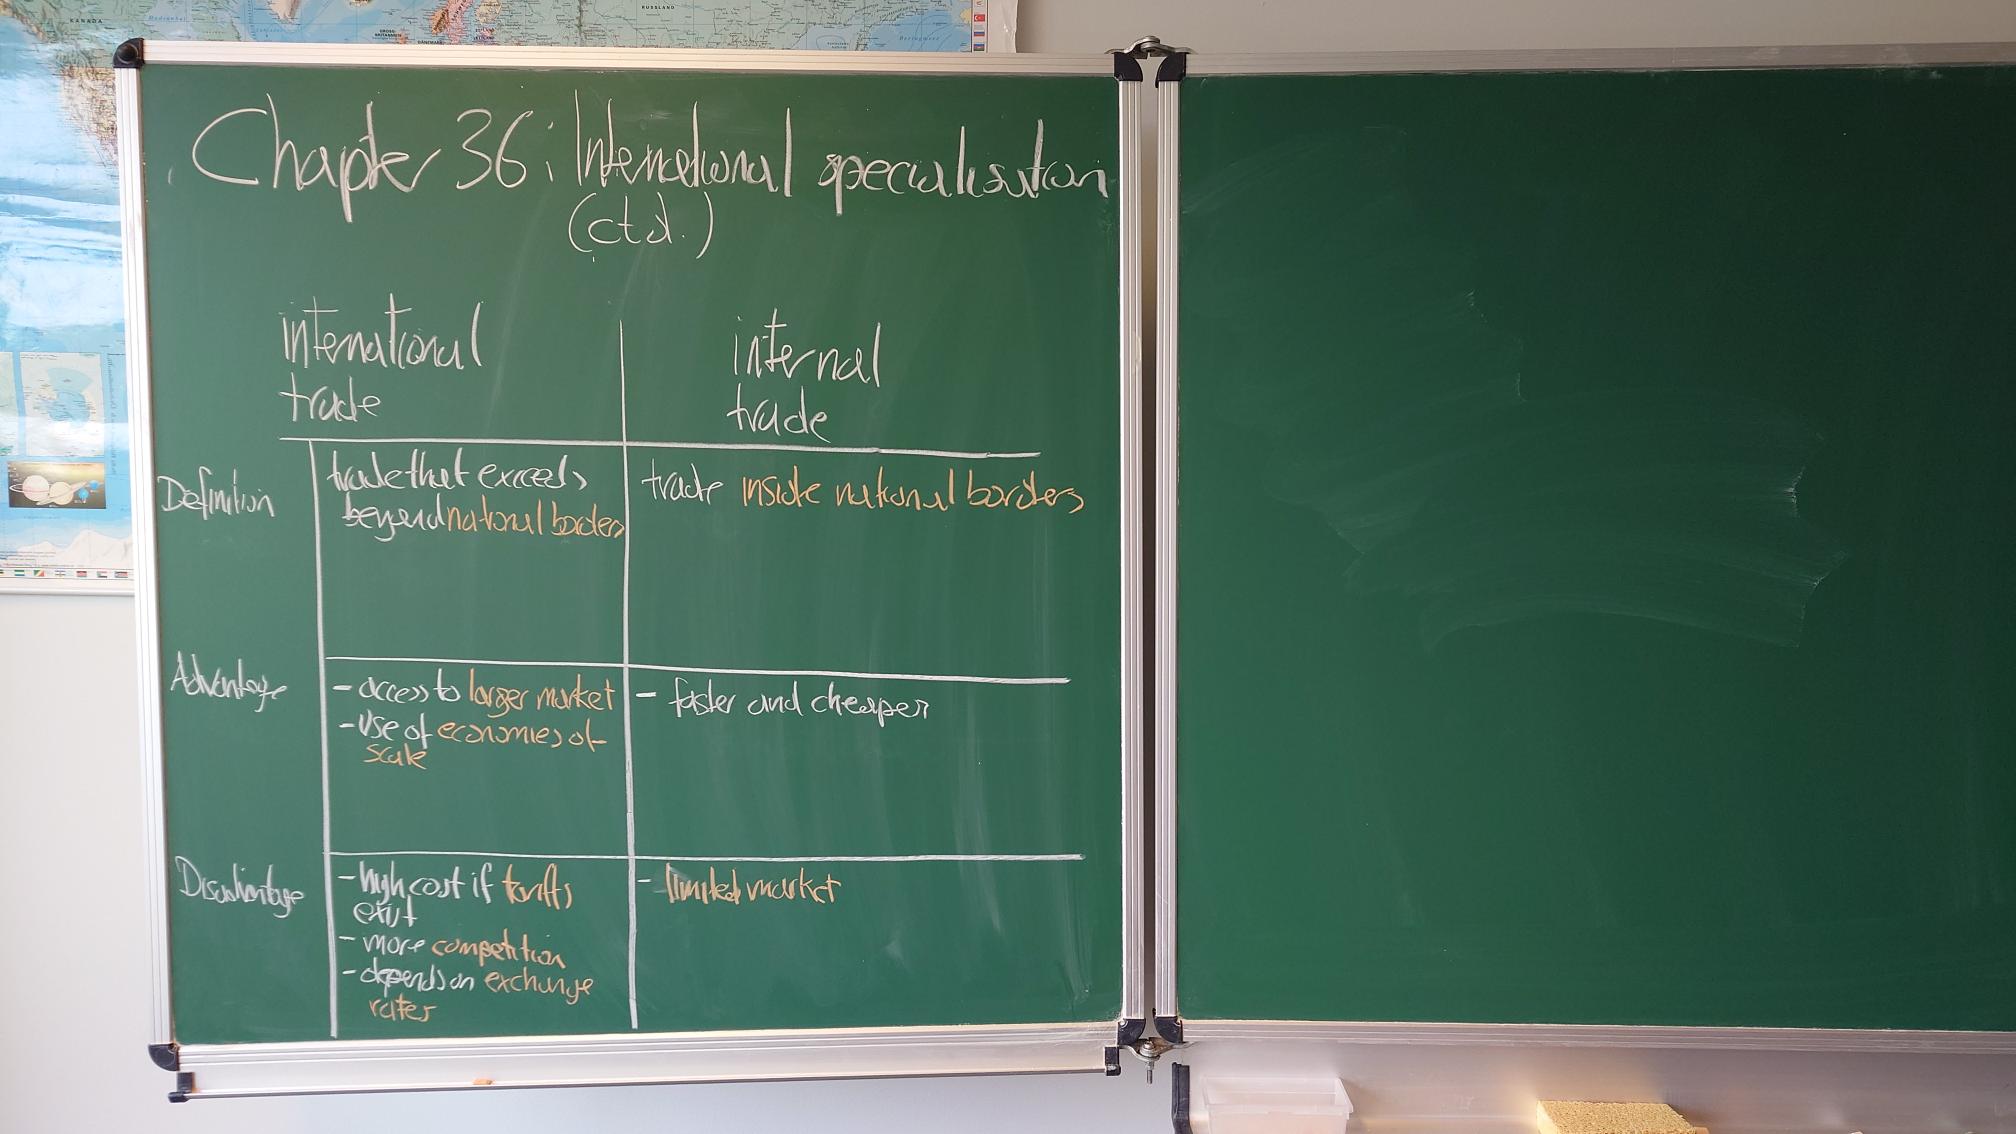 KANADA
RUSSLAND
GROSS-
BRITANNIEN
DÄNEMARK
Beringmeer
Chapter 36: International specialisation
(ctd.)
international
trade
internal
trade
Definition
trade that exceeds
beyond national borders
trade inside national borders
Advantage
- access to larger market
- use of economies of
scale
- faster and cheaper
Disadvantage
- high cost if tariffs
exist
- more competition
- depends on exchange
rates
- limited market